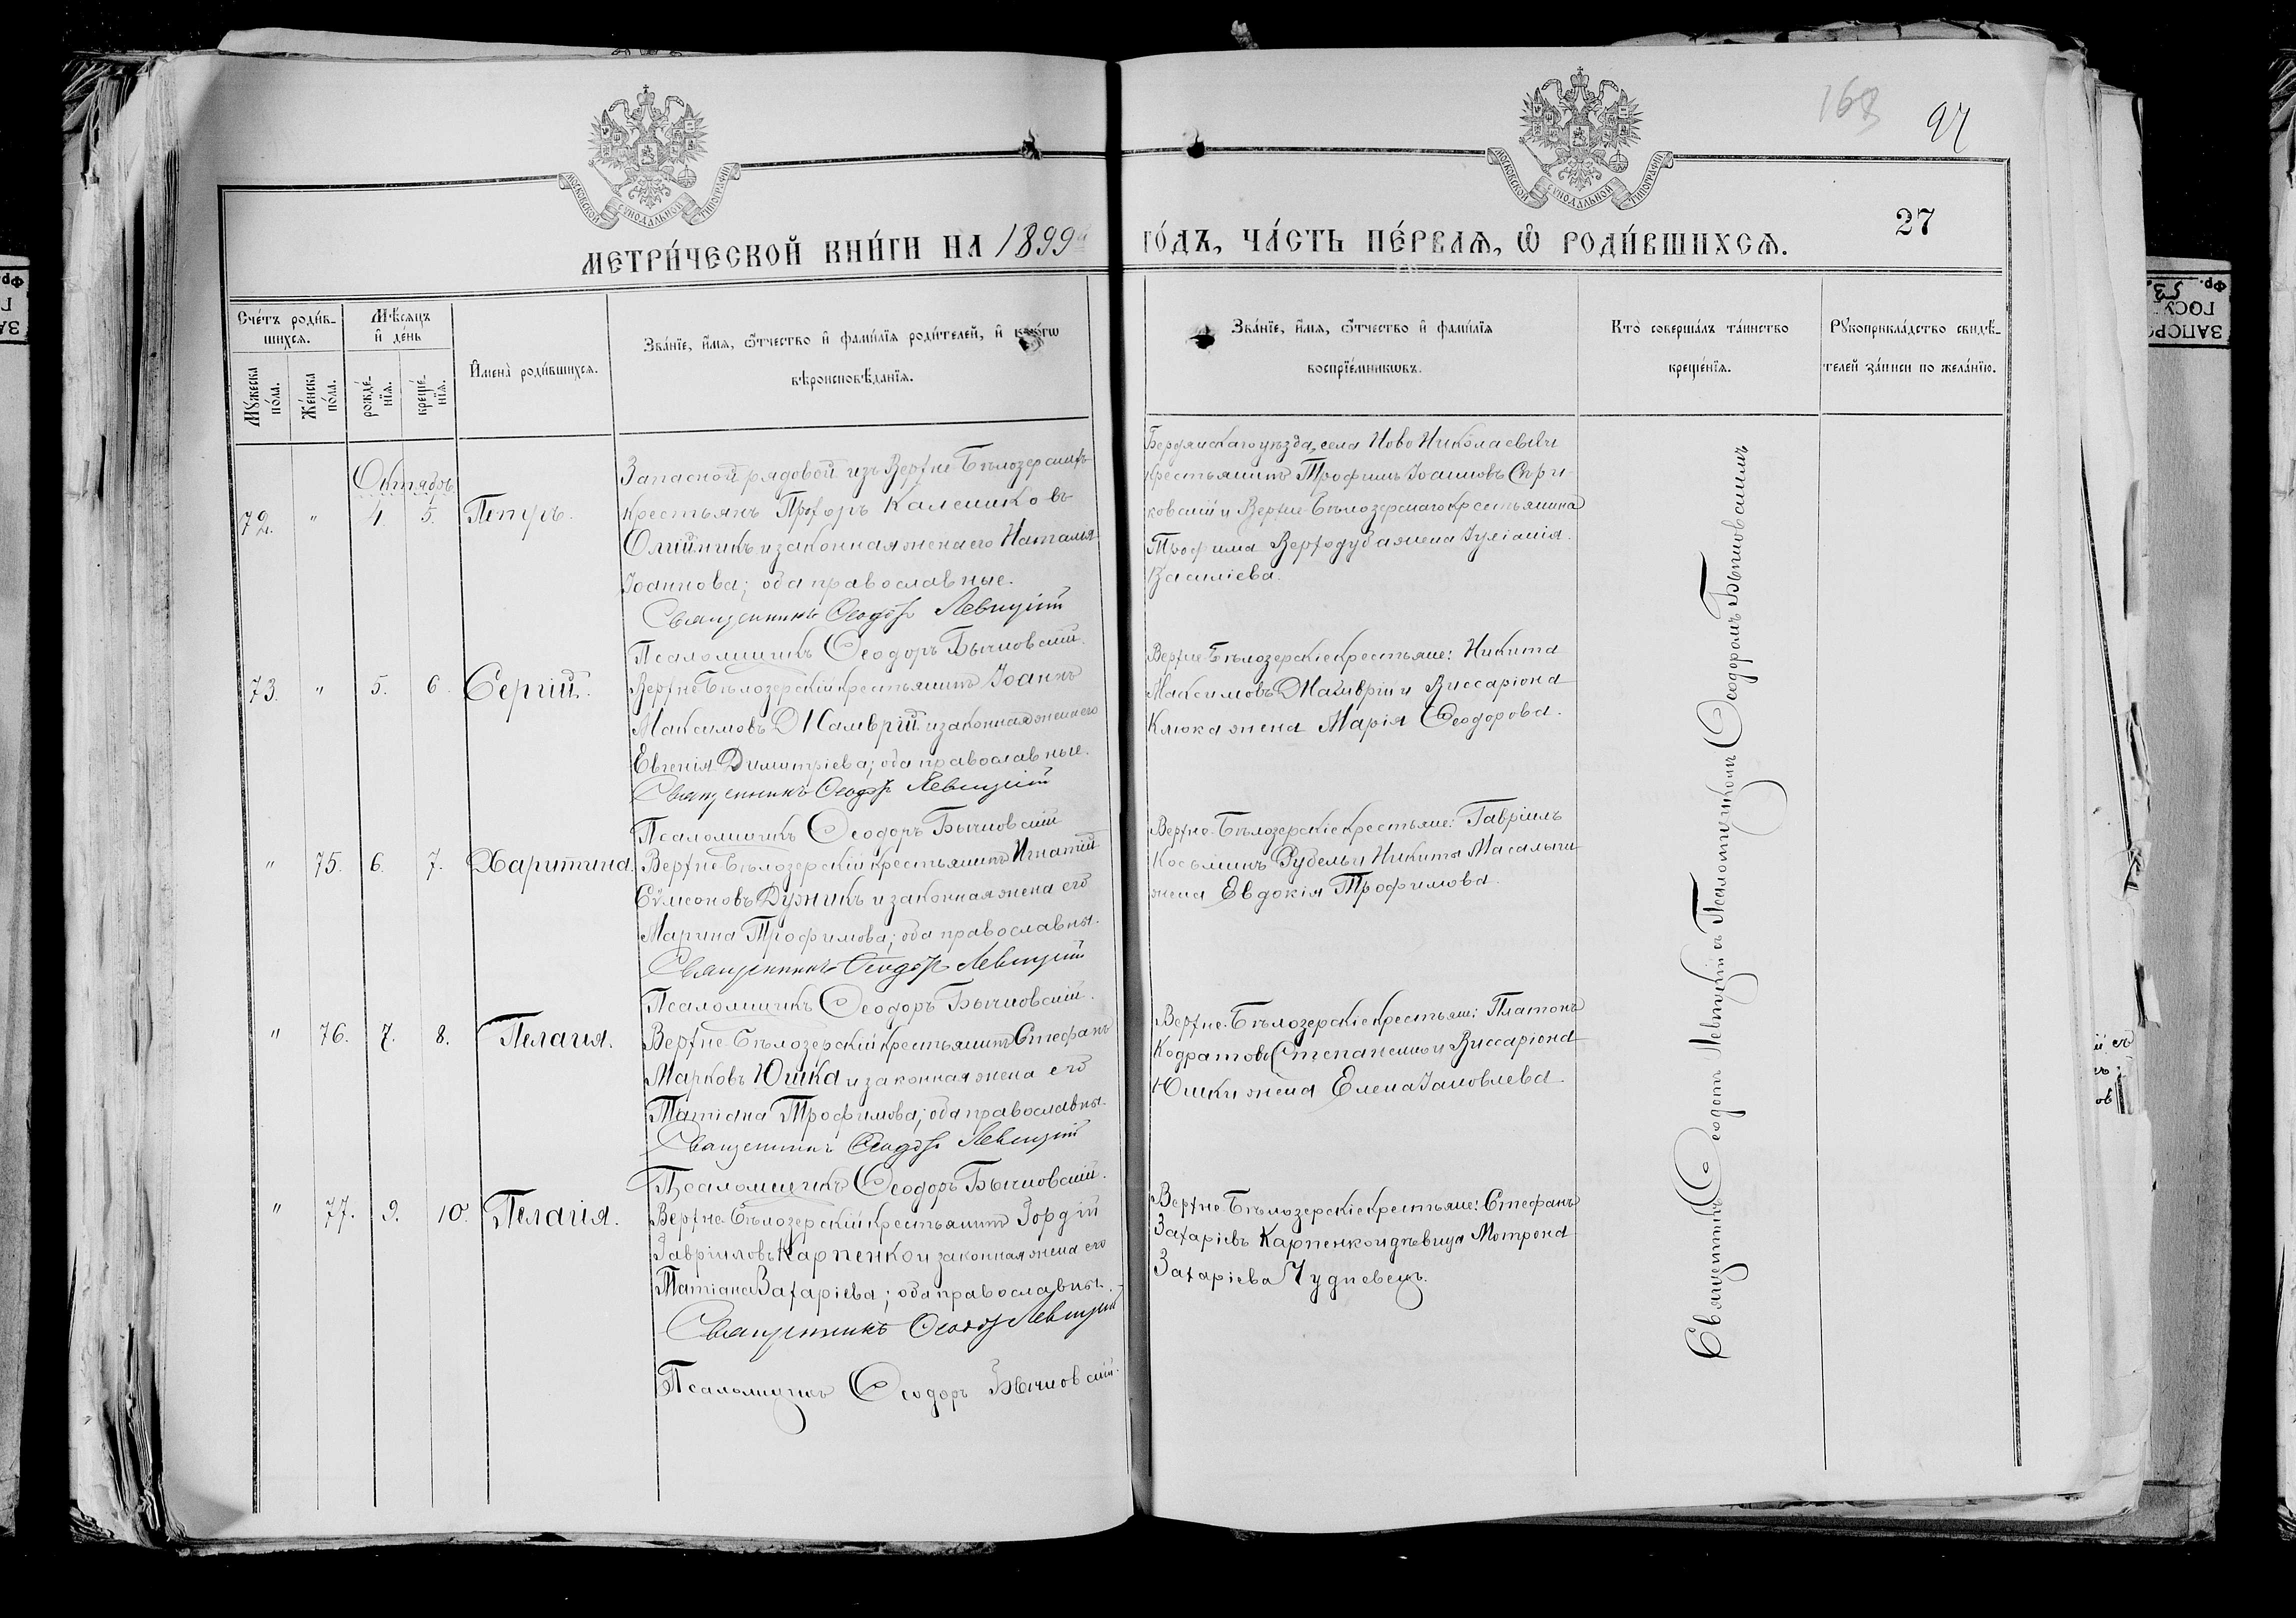 168
97
27
МОСКОВСКОЙ СѴНОДАЛЬНОЙ ТИПОГРАФІИ
МОСКОВСКОЙ СѴНОДАЛЬНОЙ ТИПОГРАФІИ
МЕТРИ́ЧЕСКОЙ КНИ́ГИ НА 1899й ГО́ДЪ, ЧА́СТЬ ПЕ́РВАѦ, Ѡ҆ РОДИ́ВШИХСѦ.
Сче́тъ роди́в-
шихсѧ.
Мꙋ́жеска по́ла.
Же́нска по́ла.
Мѣ́сѧцъ и҆ де́нь
рожде́-нїѧ.
креще́-нїѧ.
И҆мена̀ роди́вшихсѧ.
Зва́нїе, и҆́мѧ, ѻ҆́тчество и҆ фами́лїѧ роди́телей, и҆ како́гѡ
вѣроисповѣ́данїѧ.
Зва́нїе, и҆́мѧ, ѻ҆́тчество и҆ фами́лїѧ
воспрїе́мникѡвъ.
Кто̀ соверша́лъ та́инство
креще́нїѧ.
Рꙋкоприкла́дство свидѣ́-
телей за́писи по жела́нїю.
Октябрь
72. " 4. 5. Петръ.
Запасной рядовой изъ Верхне-Бѣлозерскихъ
крестьянъ Прохоръ Калениковъ
Олійникъ и законная жена его Наталья
Іоаннова; оба православные.
Священникъ Ѳеодоръ Левицкій
Псаломщикъ Ѳеодоръ Бычковскій.
Бердянскаго уѣзда, села Ново Николаевки
крестьянинъ Трофимъ Іоанновъ Скри-
ковскій и Верхне-Бѣлозерскаго крестьянина
Трофима Верходуба жена Іуліанія
Василіева.
73. " 5. 6. Сергій.
Верхне-Бѣлозерскій крестьянинъ Іоаннъ
Максимовъ Жамврій и законная жена его
Евгенія Димитріева; оба православные.
Священникъ Ѳеодоръ Левицкій
Псаломщикъ Ѳеодоръ Бычковскій
Верхне-Бѣлозерскіе крестьяне: Никита
Максимовъ Жамврій и Виссаріона
Клюка жена Марія Ѳеодорова.
" 75. 6. 7. Харитина.
Верхне-Бѣлозерскій крестьянинъ Игнатій
Сѵмеоновъ Дужникъ и законная жена его
Марина Трофимова; оба православны.
Священникъ Ѳеодоръ Левицкій
Псаломщикъ Ѳеодоръ Бычковскій.
Верхне-Бѣлозерскіе крестьяне: Гавріилъ
Косьминъ Рубель и Никиты Масалыги
жена Евдокія Трофимова.
" 76. 7. 8. Пелагія.
Верхне-Бѣлозерскій крестьянинъ Стефанъ
Марковъ Юшка и законная жена его
Татіана Трофимова; оба православны.
Священникъ Ѳеодоръ Левицкій
Псаломщикъ Ѳеодоръ Бычковскій.
Верхне-Бѣлозерскіе крестьяне: Платонъ
Кодратовъ Степаненко и Виссаріона
Юшки жена Елена Іаковлева
" 77. 9. 10. Пелагія.
Верхне-Бѣлозерскій крестьянинъ Гордій
Гавріиловъ Карпенко и законная жена его
Татіана Захаріева; оба православны.
Священникъ Ѳеодоръ Левицкій
Псаломщикъ Ѳеодоръ Бычковскій.
Верхне-Бѣлозерскіе крестьяне: Стефанъ
Захаріевъ Карпенко и дѣвица Мотрона
Захаріева Чудневецъ.
Священникъ Ѳеодоръ Левицкій съ Псаломщикомъ Ѳеодоромъ Бычковскимъ